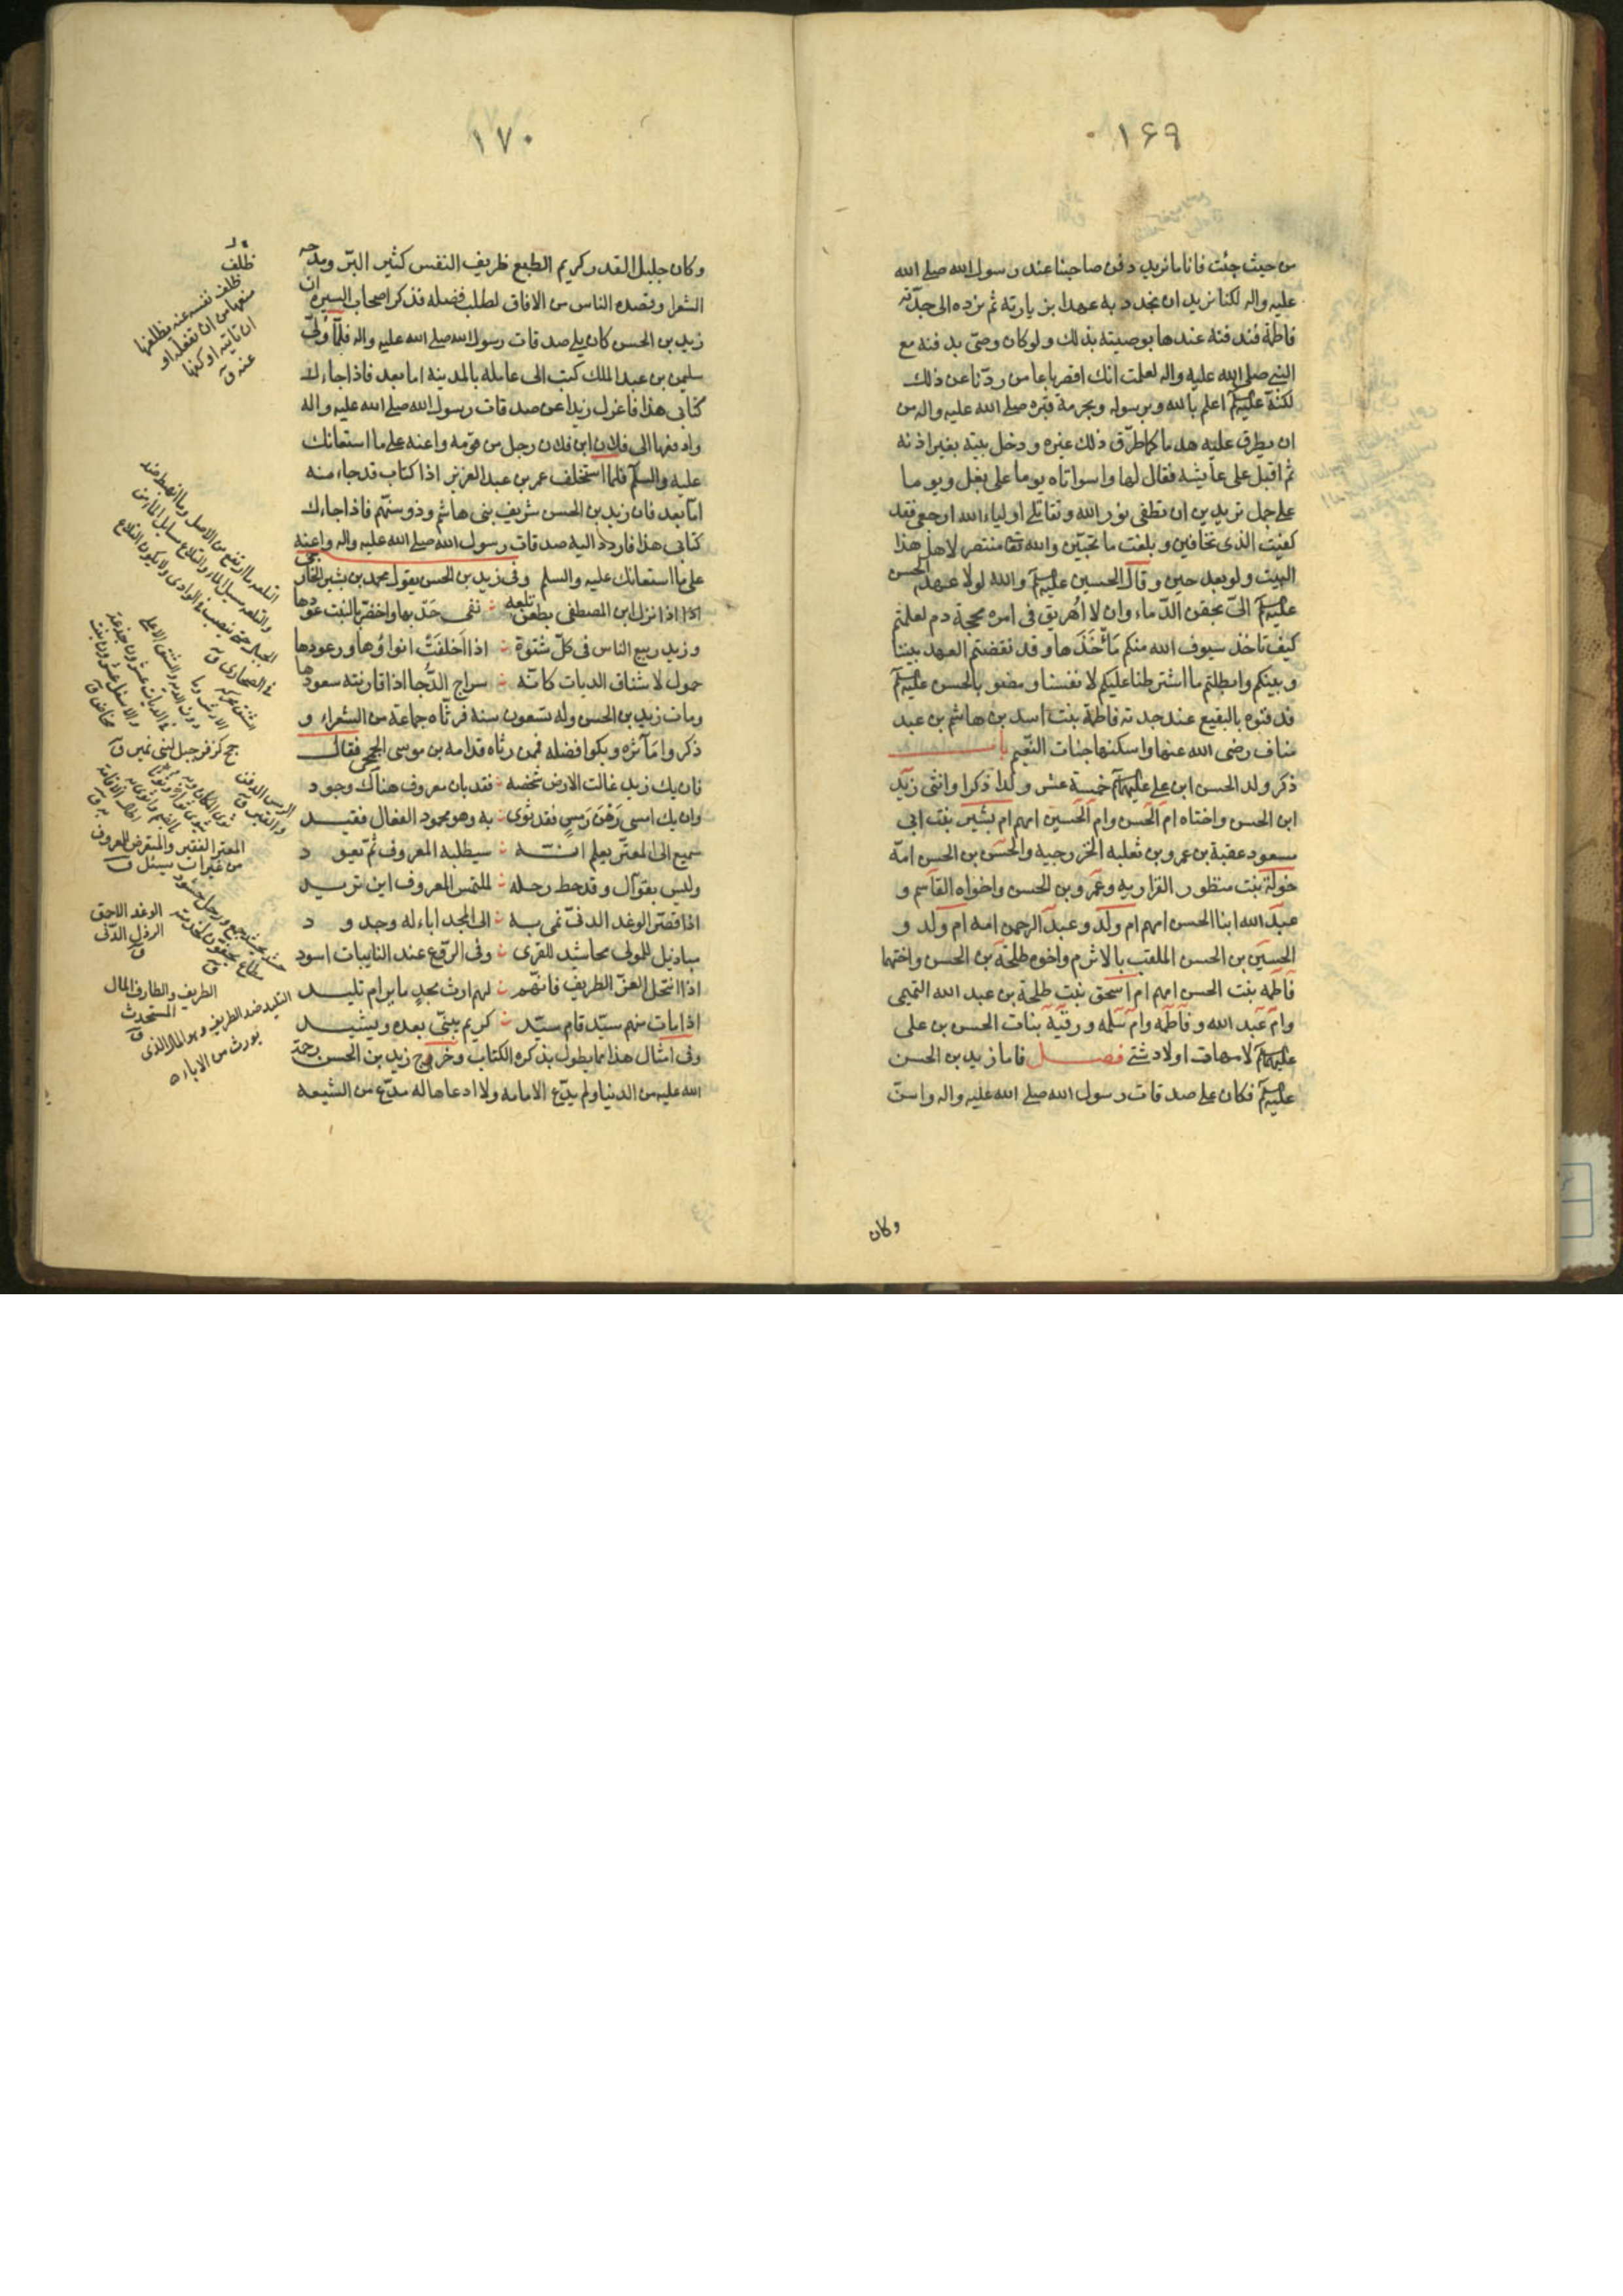 ١۶٩
من حيث جئت فانا ما نريد دفن صاحبنا عند رسول الله صلى الله
عليه واله لكنا نريد ان نجدد به عهدا بزيارته ثم نرده الى جدّته
فاطمة فندفنه عندها بوصيته بذلك ولو كان وصّى بدفنه مع
النبى صلى الله عليه واله لعلمت انك اقصر باعا من ردّنا عن ذلك
لكنّه عليه السلم اعلم بالله وبرسوله وبحرمة قبره صلى الله عليه واله من
ان يطرق عليه هدما كما طرّق ذلك غيره ودخل بيته بغير اذنه
ثم اقبل على عايشه فقال لها واسواتاه يوما على بغل ويوما
على جمل تريدين ان تطفى نور الله وتقاتلى اولياء الله ارجعى فقد
كفيت الذى تخافين وبلغت ما تحبّين والله تعا منتصر لاهل هذا
البيت ولو بعد حين وقال الحسين عليه السلم والله لولا عهد الحسن
عليه السلم الىّ بحقن الدّماء وان لا اُهريق فى امره محجمة دم لعلمتم
كيف تاخذ سيوف الله منكم مَأْخَذَها وقد نقضتم العهد بيننا
وبينكم وابطلتم ما اشترطنا عليكم لانفسنا ومضو بالحسن عليه السلم
فدفنوه بالبقيع عند جدته فاطمة بنت اسد بن هاشم بن عبد
مناف رضى الله عنها واسكنها جنات النّعيم باب
ذكر ولد الحسن ابن على عليهما السلم خمسة عشر ولدا ذكرا وانثى زيد
ابن الحسن واختاه ام الحسن وام الحسين امهم ام بشير بنت ابى
مسعود عقبة بن عمرو بن ثعلبه الخزرجيه والحسن بن الحسن امّه
خولة بنت منظور الفزاريه وعمرو بن الحسن واخواه القاسم و
عبد الله ابنا الحسن امهم ام ولد وعبد الرحمن امه ام ولد و
الحسين بن الحسن الملقب بالاثرم واخوه طلحة بن الحسن واختهما
فاطمه بنت الحسن امهم ام اسحق بنت طلحة بن عبد الله التيمى
وام عبد الله وفاطمه وام سلمه ورقيّة بنات الحسن بن على
عليهما السلم لامهات اولاد شتى فصل فاما زيد بن الحسن
عليه السلم فكان على صدقات رسول الله صلى الله عليه واله واسنّ
وكان
١٧٠
وكان جليل القدر كريم الطبع ظريف النفس كثير البرّ ومدحه
الشعرا وقصده الناس من الافاق لطلب فضله فذكر اصحاب السيره ان
زيد بن الحسن كان يلى صدقات رسول الله صلى الله عليه واله فلمّا وُلّى
سليمن بن عبد الملك كتب الى عامله بالمدينه اما بعد فاذا جاءك
كتابى هذا فاعزل زيدا عن صدقات رسول الله صلى الله عليه واله
وادفعها الى فلان ابن فلان رجل من قومه واعنه على ما استعانك
عليه والسلم فلما استخلف عمر بن عبد العزيز اذا كتاب قد جاء منه
امّا بعد فان زيد بن الحسن شريف بنى هاشم وذو سنّهم فاذا جاءك
كتابى هذا فاردد اليه صدقات رسول الله صلى الله عليه واله واعنه
على ما استعانك عليه والسلم وفى زيد بن الحسن يقول محمد بن بشير الخارجى
اذا نزل ابن المصطفى بطن تلعه نفى جدبها واخضرّ بالنبت عودها
وزيد ربيع الناس فى كلّ شتوة اذا اَخلفَتْ انواؤها ورعودها
حمول لاشناق الديات كانّه سراج الدُّجا اذا قارنته سعودها
ومات زيد بن الحسن وله تسعون سنة فرثاه جماعة من الشعراء و
ذكروا مآثره وبكوا فضله فممن رثاه قدامه بن موسى الجمحى فقال
فان يك زيد غالت الارض شخصه فقد بان معروف هناك وجود
وان يك امسى رَهْنَ رَمسٍ فقد ثوى به وهو محمود الفعال فقيد
سميع الى المعترّ يعلم انّه سيطلبه المعروف ثم تعود
وليس بقوّال وقد حط رحله لملتمس المعروف اين تريد
اذا قصّر الوغد الدنىّ نمى به الى المجد اباء له وجدود
مباذيل للمولى محاشيد للقرى وفى الرّوع عند النايبات اسود
اذا انتحل العزّ الطريف فانّهم لهم ارث مجدٍ ما يرام تليد
اذا مات منهم سيّد قام سيّد كريم يبنّى بعده ويشيد
وفى امثال هذا مما يطول بذكره الكتاب وخرج زيد بن الحسن رحمة
الله عليه من الدنيا ولم يدّع الامامه ولا ادعاها له مدّع من الشيعه
ظلف
ظلف نفسه عنه يظلفها
منعها من ان تفعله او
ان تاتيه او كفها
عنه ق
المعتر الفقير والمتعرض للمعروف
من غير ان يسئل ق
الوغد الاحمق
الرذل الدنى
ق
الطريف والطارف المال
المستحدث
ق
التليد ضد الطريف وهو المال الذى
يورث من الاباء